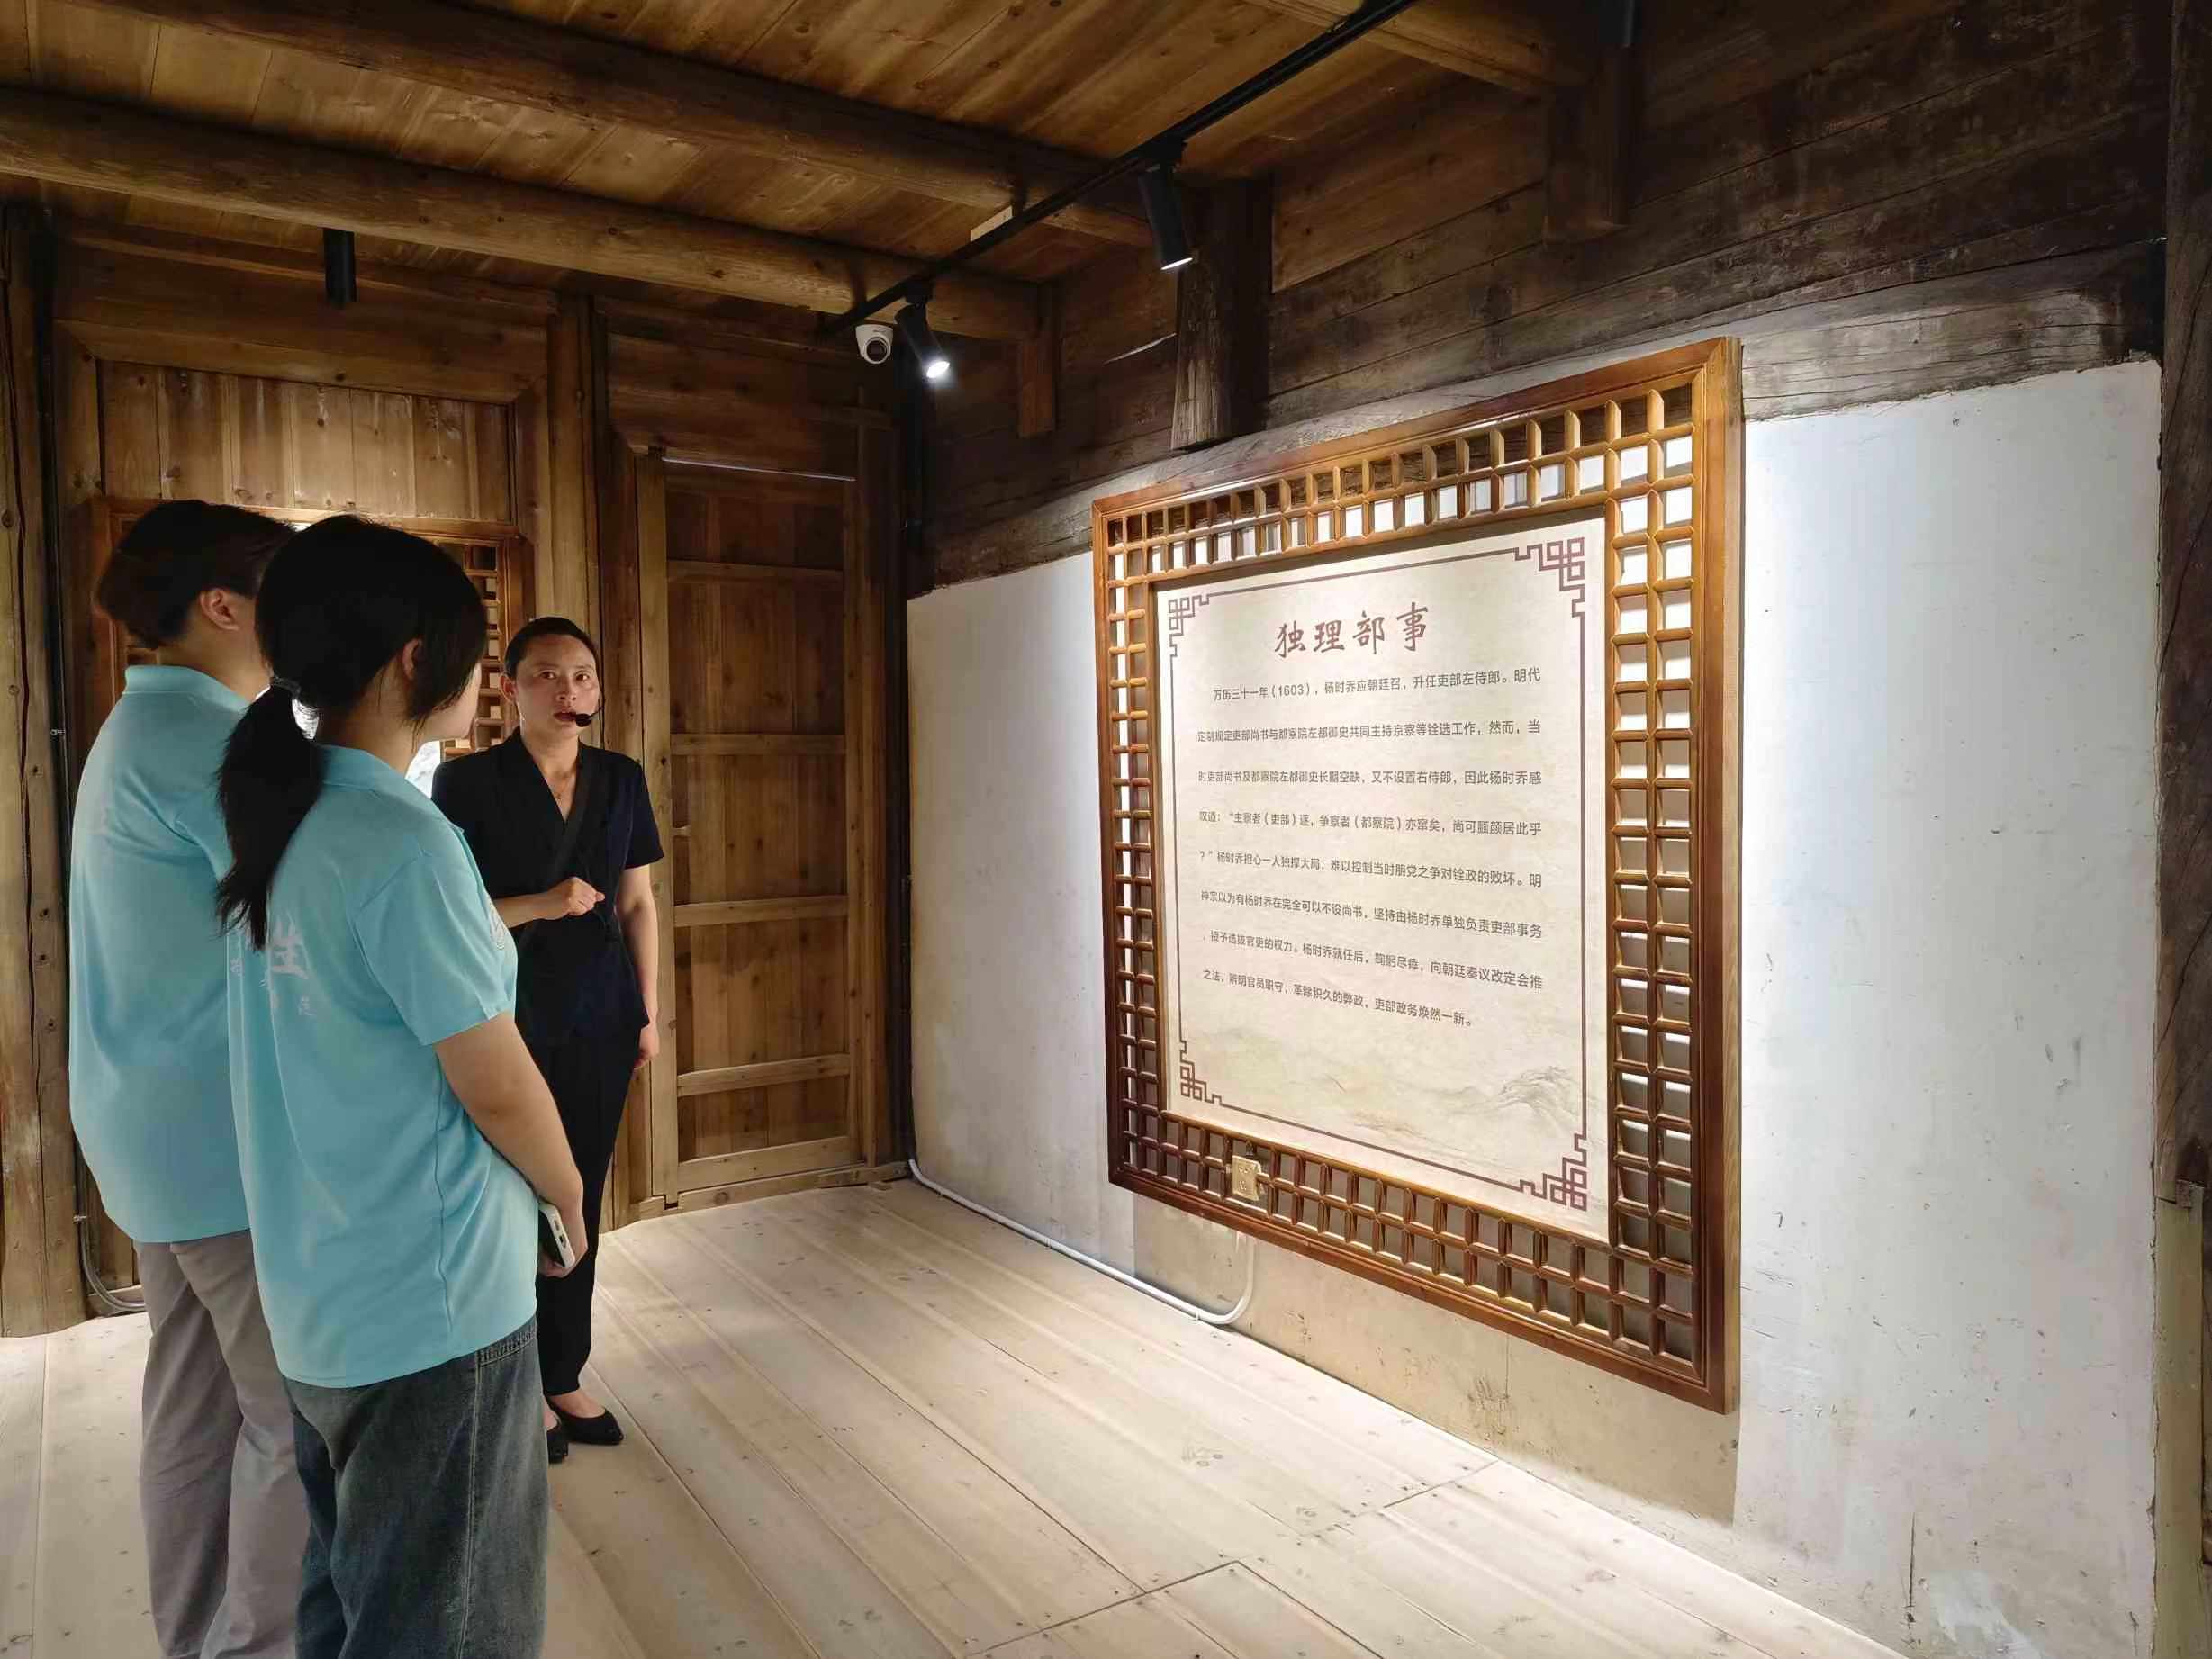 独理部事
万历三十一年（1603），杨时乔应朝廷召，升任吏部左侍郎。明代
定制规定吏部尚书与都察院左都御史共同主持京察等铨选工作，然而，当
时吏部尚书及都察院左都御史长期空缺，又不设置右侍郎，因此杨时乔感
叹道：“主察者（吏部）逐，争察者（都察院）亦窜矣，尚可腼颜居此乎
？”杨时乔担心一人独撑大局，难以控制当时朋党之争对铨政的败坏。明
神宗以为有杨时乔在完全可以不设尚书，坚持由杨时乔单独负责吏部事务
，授予选拔官吏的权力。杨时乔就任后，鞠躬尽瘁，向朝廷奏议改定会推
之法，辨明官员职守，革除积久的弊政，吏部政务焕然一新。